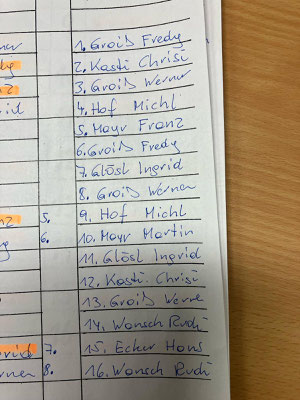 1. Groiß Fredy
2. Kasti Chrisi
3. Groiß Werner
4. Hof Michl
5. Mayr Franz
6. Groiß Fredy
7. Glösl Ingrid
8. Groiß Werner
5. 9. Hof Michl
6. 10. Mayr Martin
11. Glösl Ingrid
12. Kasti Chrisi
13. Groiß Werne
14. Wonsch Rudi
7. 15. Ecker Hans
8. 16. Wonsch Rudi